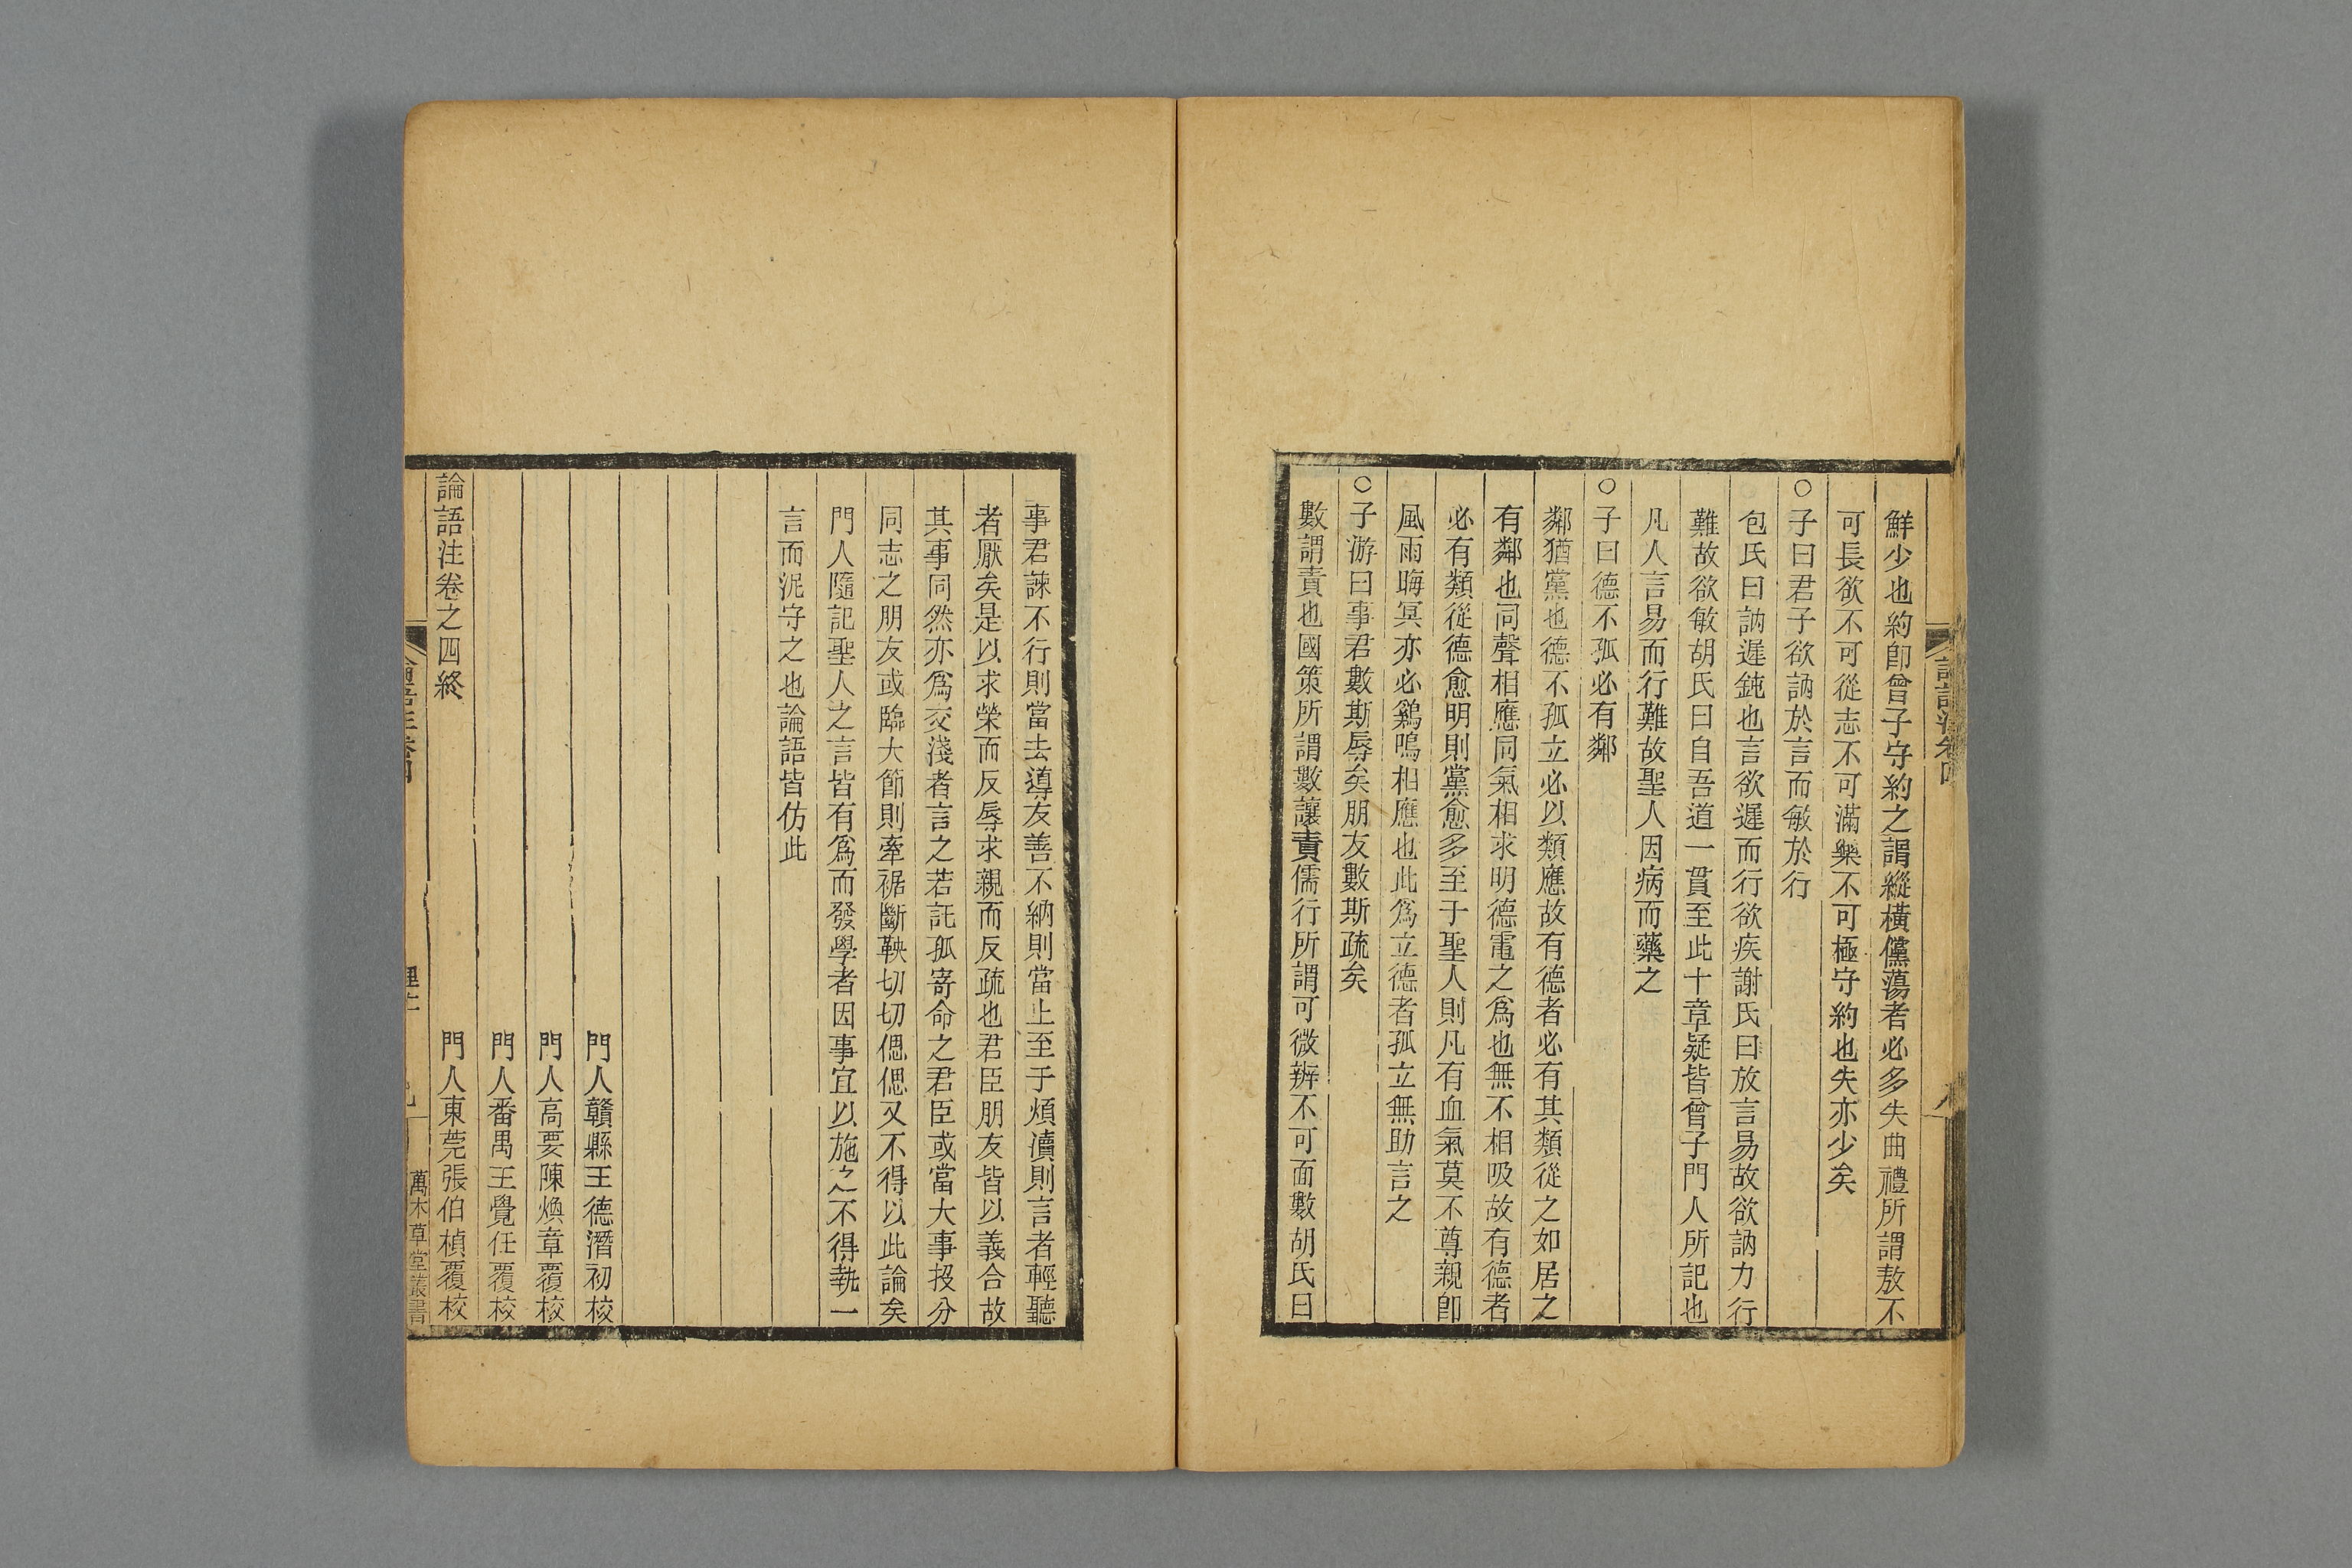 鮮少也約卽曾子守約之謂縱橫儻蕩者必多失曲禮所謂敖不
可長欲不可從志不可滿樂不可極守約也失亦少矣
○子曰君子欲訥於言而敏於行
包氏曰訥遲鈍也言欲遲而行欲疾謝氏曰放言易故欲訥力行
難故欲敏胡氏曰自吾道一貫至此十章疑皆曾子門人所記也
凡人言易而行難故聖人因病而藥之
○子曰德不孤必有鄰
鄰猶黨也德不孤立必以類應故有德者必有其類從之如居之
有鄰也同聲相應同氣相求明德電之爲也無不相吸故有德者
必有類從德愈明則黨愈多至于聖人則凡有血氣莫不尊親卽
風雨晦冥亦必鷄鳴相應也此爲立德者孤立無助言之
○子游曰事君數斯辱矣朋友數斯疏矣
數謂責也國策所謂數讓責儒行所謂可微辨不可面數胡氏曰
事君諫不行則當去導友善不納則當止至于煩瀆則言者輕聽
者厭矣是以求榮而反辱求親而反疏也君臣朋友皆以義合故
其事同然亦爲交淺者言之若託孤寄命之君臣或當大事投分
同志之朋友或臨大節則牽裾斷鞅切切偲偲又不得以此論矣
門人隨記聖人之言皆有爲而發學者因事宜以施之不得執一
言而泥守之也論語皆仿此
門人贛縣王德潛初校
門人高要陳煥章覆校
門人番禺王覺任覆校
論語注卷之四終
門人東莞張伯楨覆校
萬木草堂叢書